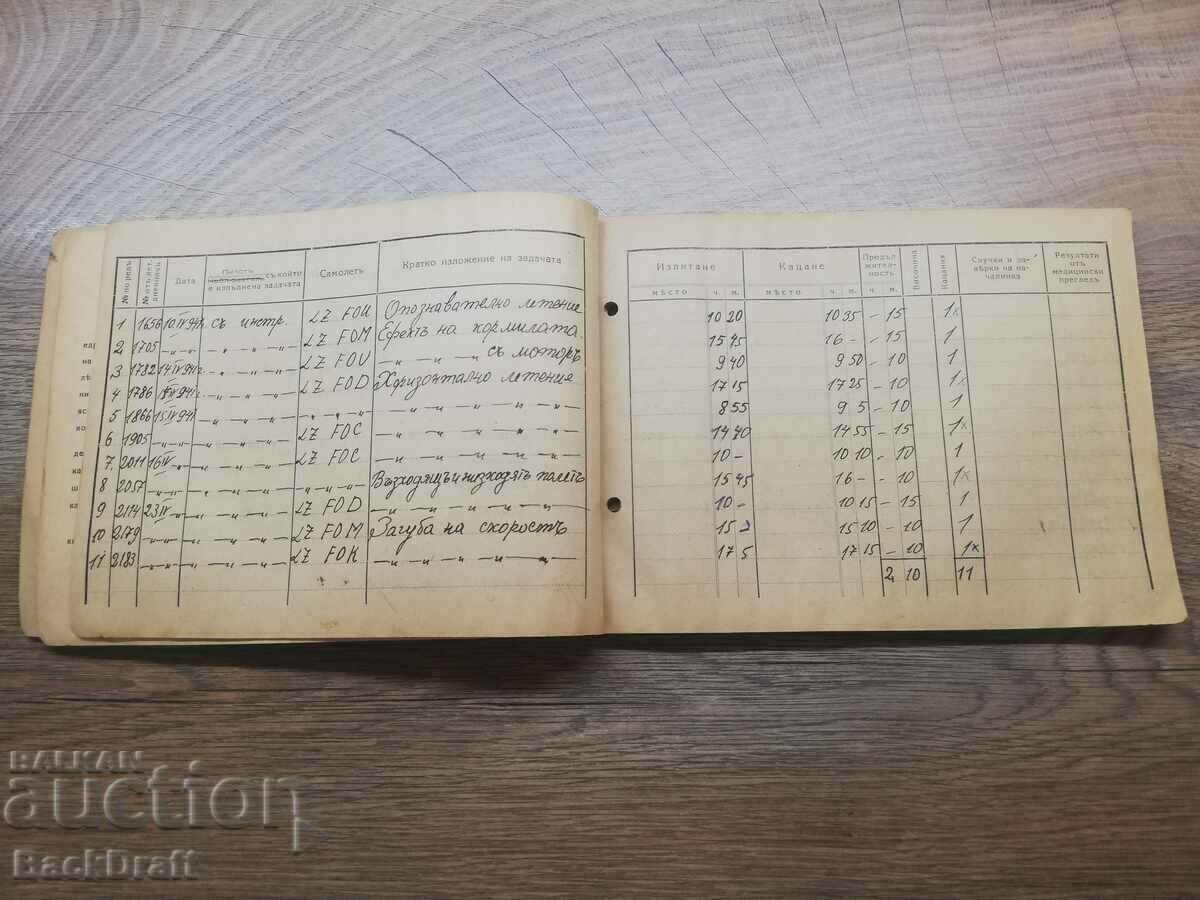 № по редъ № отъ лет. дневникъ Дата Пилотъ съ който е изпълнена задачата Самолетъ Кратко изложение на задачата Излитане Кацане Продължителность Височина Кацания Случки и заверка на началника Резултати отъ медицински прегледъ
място ч. м. място ч. м. ч. м.
1 1656 10 IV 941 съ инстр. LZ FOU Опознавателно летение 10 20 10 35 – 15 1x
2 1705 „ „ „ „ LZ FOM Ефектъ на кормилата. 15 45 16 – – 15 1
3 1782 14 IV 941 „ „ „ LZ FOU „ „ „ съ моторъ 9 40 9 50 – 10 1
4 1786 IV 941 „ „ „ LZ FOD Хоризонтално летение 17 15 17 25 – 10 1x
5 1866 15 IV 941 „ „ „ „ „ „ „ „ „ „ 8 55 9 5 – 10 1
6 1905 „ „ „ „ LZ FOC „ „ „ „ 14 40 14 55 – 15 1x
7. 2011 16 IV „ „ „ LZ FOC „ „ „ „ 10 – 10 10 – 10 1
8 2057 „ „ „ „ „ „ „ Възходящъ и низходящъ полетъ 15 45 16 – – 10 1x
9 2114 23 IV „ „ „ LZ FOD „ „ „ „ 10 – 10 15 – 15 1
10 2179 „ „ „ „ LZ FOM Загуба на скоростъ 15 15 10 – 10 1
11 2183 „ „ „ „ LZ FOK „ „ „ „ 17 5 17 15 – 10 1x
2 10 11
BALKAN
auction
BackDraft